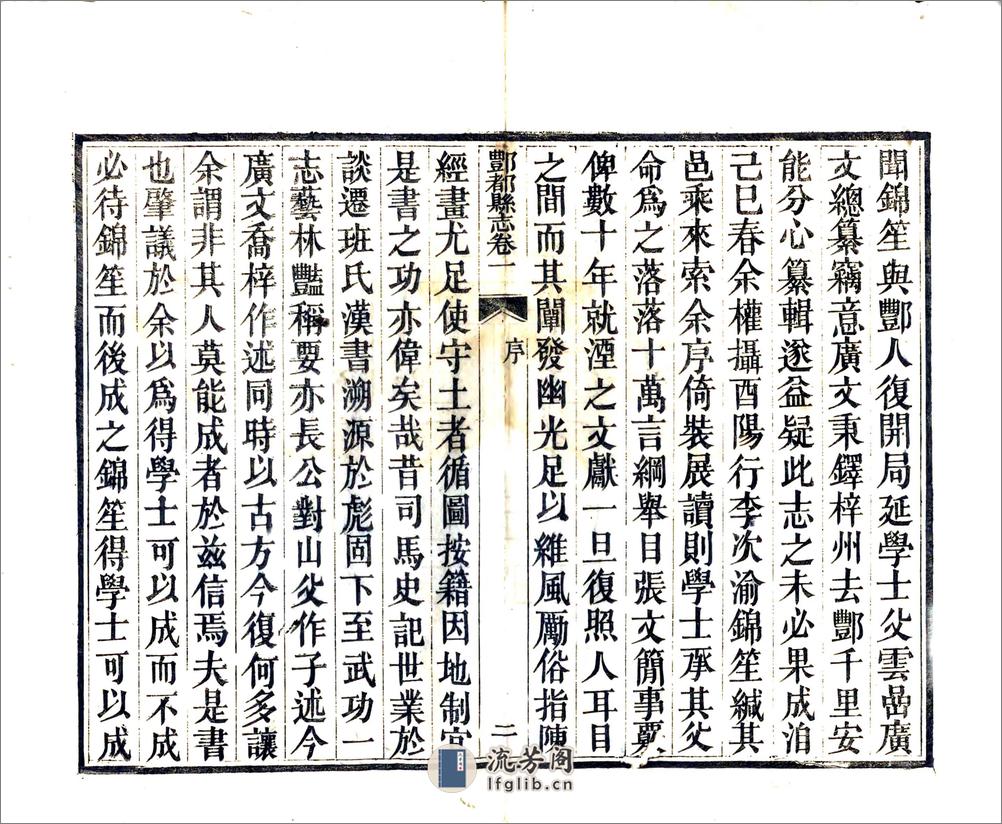 聞錦笙與酆人復開局延學士父雲嵒廣
文總纂竊意廣文秉鐸梓州去酆千里安
能分心纂輯遂益疑此志之未必果成洎
己巳春余權攝酉陽行李次渝錦笙緘其
邑乘來索余序倚裝展讀則學士承其父
命爲之落落十萬言綱舉目張文簡事賅
俾數十年就湮之文獻一旦復照人耳目
之間而其闡發幽光足以維風勵俗指陳
酆都縣志卷一 序 二
經畫尤足使守土者循圖按籍因地制宜
是書之功亦偉矣哉昔司馬史記世業於
談遷班氏漢書溯源於彪固下至武功一
志藝林豔稱要亦長公對山父作子述今
廣文喬梓作述同時以古方今復何多讓
余謂非其人莫能成者於兹信焉夫是書
也肇議於余以爲得學士可以成而不成
必待錦笙而後成之錦笙得學士可以成
流芳阁
lfglib.cn